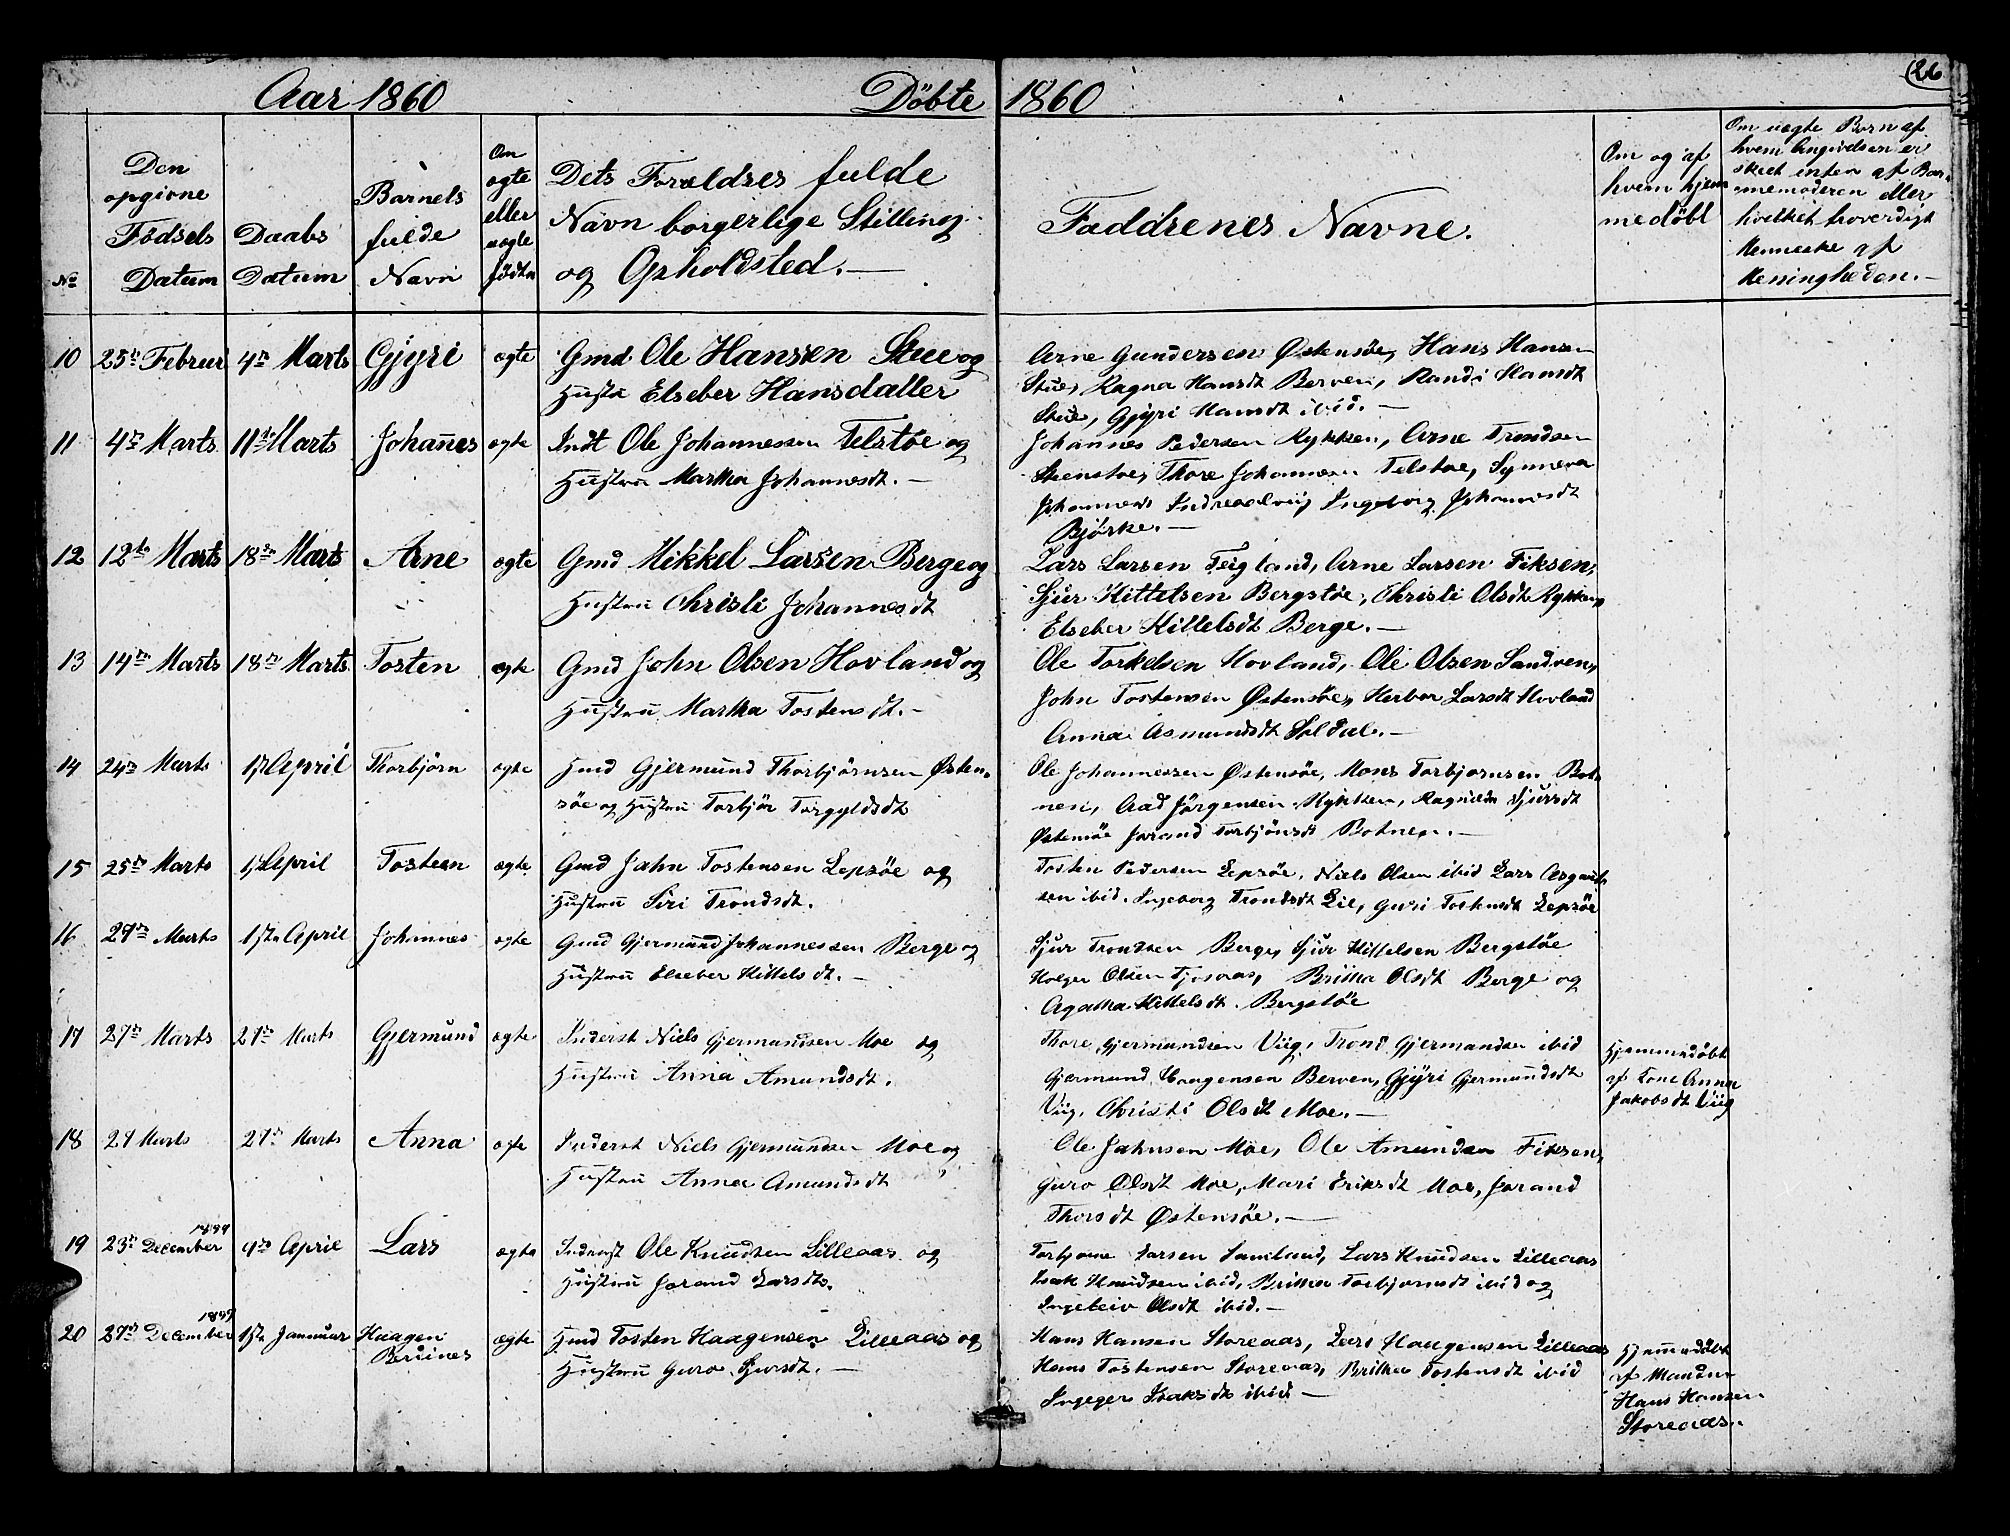 26
Aar 1860 Döbte 1860
No
Den opgivne Födsels Datum
Daabs Datum
Barnets fulde Navn
Om ægte eller uægte födte
Dets Forældres fulde
Navn borgerlige Stilling
og Opholdsted. —
Faddrenes Navne.
Om og af
hvem hjem
medöbt
Om uægte Born af
hvem Angivelsen er
skeet enten af Bar-
nemoderen eller
hvilket troverdigt
Menneske af
Menigheden. —
10 25de Februar 4de Marts Gjyri ægte Gmd Ole Hansen Stue og
Hustru Elseber Hansdatter
Arne Gundersen Østensöe, Hans Hansen
Stue, Ragna Hansdt Berven, Randi Hansdt
Stue, Gjyri Hansdt ibid. —
11 4de Marts 11te Marts Johanes ægte Indt Ole Johannessen Telstöe og
Hustru Martha Johannesdt. —
Johannes Pedersen Rykken, Arne Trondsen
Steenstöe, Thore Johannesen Telstöe, Synneva
Johannesdt Ingeborg Johannesdt
Bjørke. —
12 12te Marts 18de Marts Arne ægte Gmd Mikkel Larsen Berge og
Hustru Christi Johannesdt
Lars Larsen Teigland, Arne Larsen Fiksen,
Sjur Kittelsen Bergstöe, Christi Olsdt Rykken,
Elseber Kittelsdt Berge. —
13 14de Marts 18de Marts Tosten ægte Gmd John Olsen Hovland og
Hustru Martha Tostensdt. —
Ole Torkelsen Hovland, Ole Olsen Sandven,
John Tostensen Østensöe, Herbor Larsdt Hovland
Anna Asmundsdt Soldal. —
14 24de Marts 1ste April Thorbjörn ægte Hmd Gjermund Thorbjörnsen Østen-
söe og Hustru Torbjör Torgyldsdt
Ole Johannessen Østensöe, Mons Torbjornsen Bot-
nen, Aad Jörgensen Rykken, Ragnilda Sjursdt
Østensöe Jorand Torbjönsdt Botnen. —
15 25de Marts 1ste April Tosteen ægte Gmd John Tostensen Lepsöe og
Hustru Siri Trondsdt.
Tosten Pedersen Lepsöe, Niels Olsen ibid Lars Asgaut-
sen ibid. Ingeborg Trondsdt Lie, Guri Tostensdt Lepsöe
16 29de Marts 1ste April Johannes ægte Gmd Gjermund Johannessen Berge og
Hustru Elseber Kittelsdt. —
Sjur Trondsen Berge, Sjur Kittelsen Bergstöe
Holger Olsen Tjosaas, Britha Olsdt Berge og
Agatha Kittelsdt. Bergstöe
17 27de Marts 27de Marts Gjermund ægte Inderst Niels Gjermundsen Moe og
Hustru Anna Amundsdt.
Thore Gjermundsen Viig, Trond Gjermundsen ibid
Gjermund Haagensen Berven, Gjyri Gjermundsdt
Viig, Christi Olsdt Moe. —
Hjemmedöbt
af Kone Anna
Jakobsdt Viig
18 27 Marts 27de Marts Anna ægte Inderst Niels Gjermundsen Moe og
Hustru Anna Amundsdt
Ole Johnsen Moe, Ole Amundsen Fiksen,
Guro Olsdt Moe, Mari Eriksdt Moe, Jorand
Thorsdt Østensöe. —
19 23de December 1859 9de April Lars ægte Inderst Ole Knudsen Lilleaas og
Hustru Jorand Larsdt.
Torbjorne Larsen Samland, Lars Knudsen Lilleaas
Isak Knudsen ibid, Britha Torbjornsdt ibid og
Ingeleiv Olsdt ibid. —
20 27de December 1859 1ste Januar Haagen ægte Hmd Tosten Haagensen Lilleaas og
Hustru Guro Sjursdt. —
Hans Hansen Storeaas, Lars Haagensen Lilleaas
Hans Tostensen Storeaas, Britha Tostensdt ibid
Ingeger Isaksdt ibid —
Hjemmedöbt
af Manden
Hans Hansen
Storeaas.